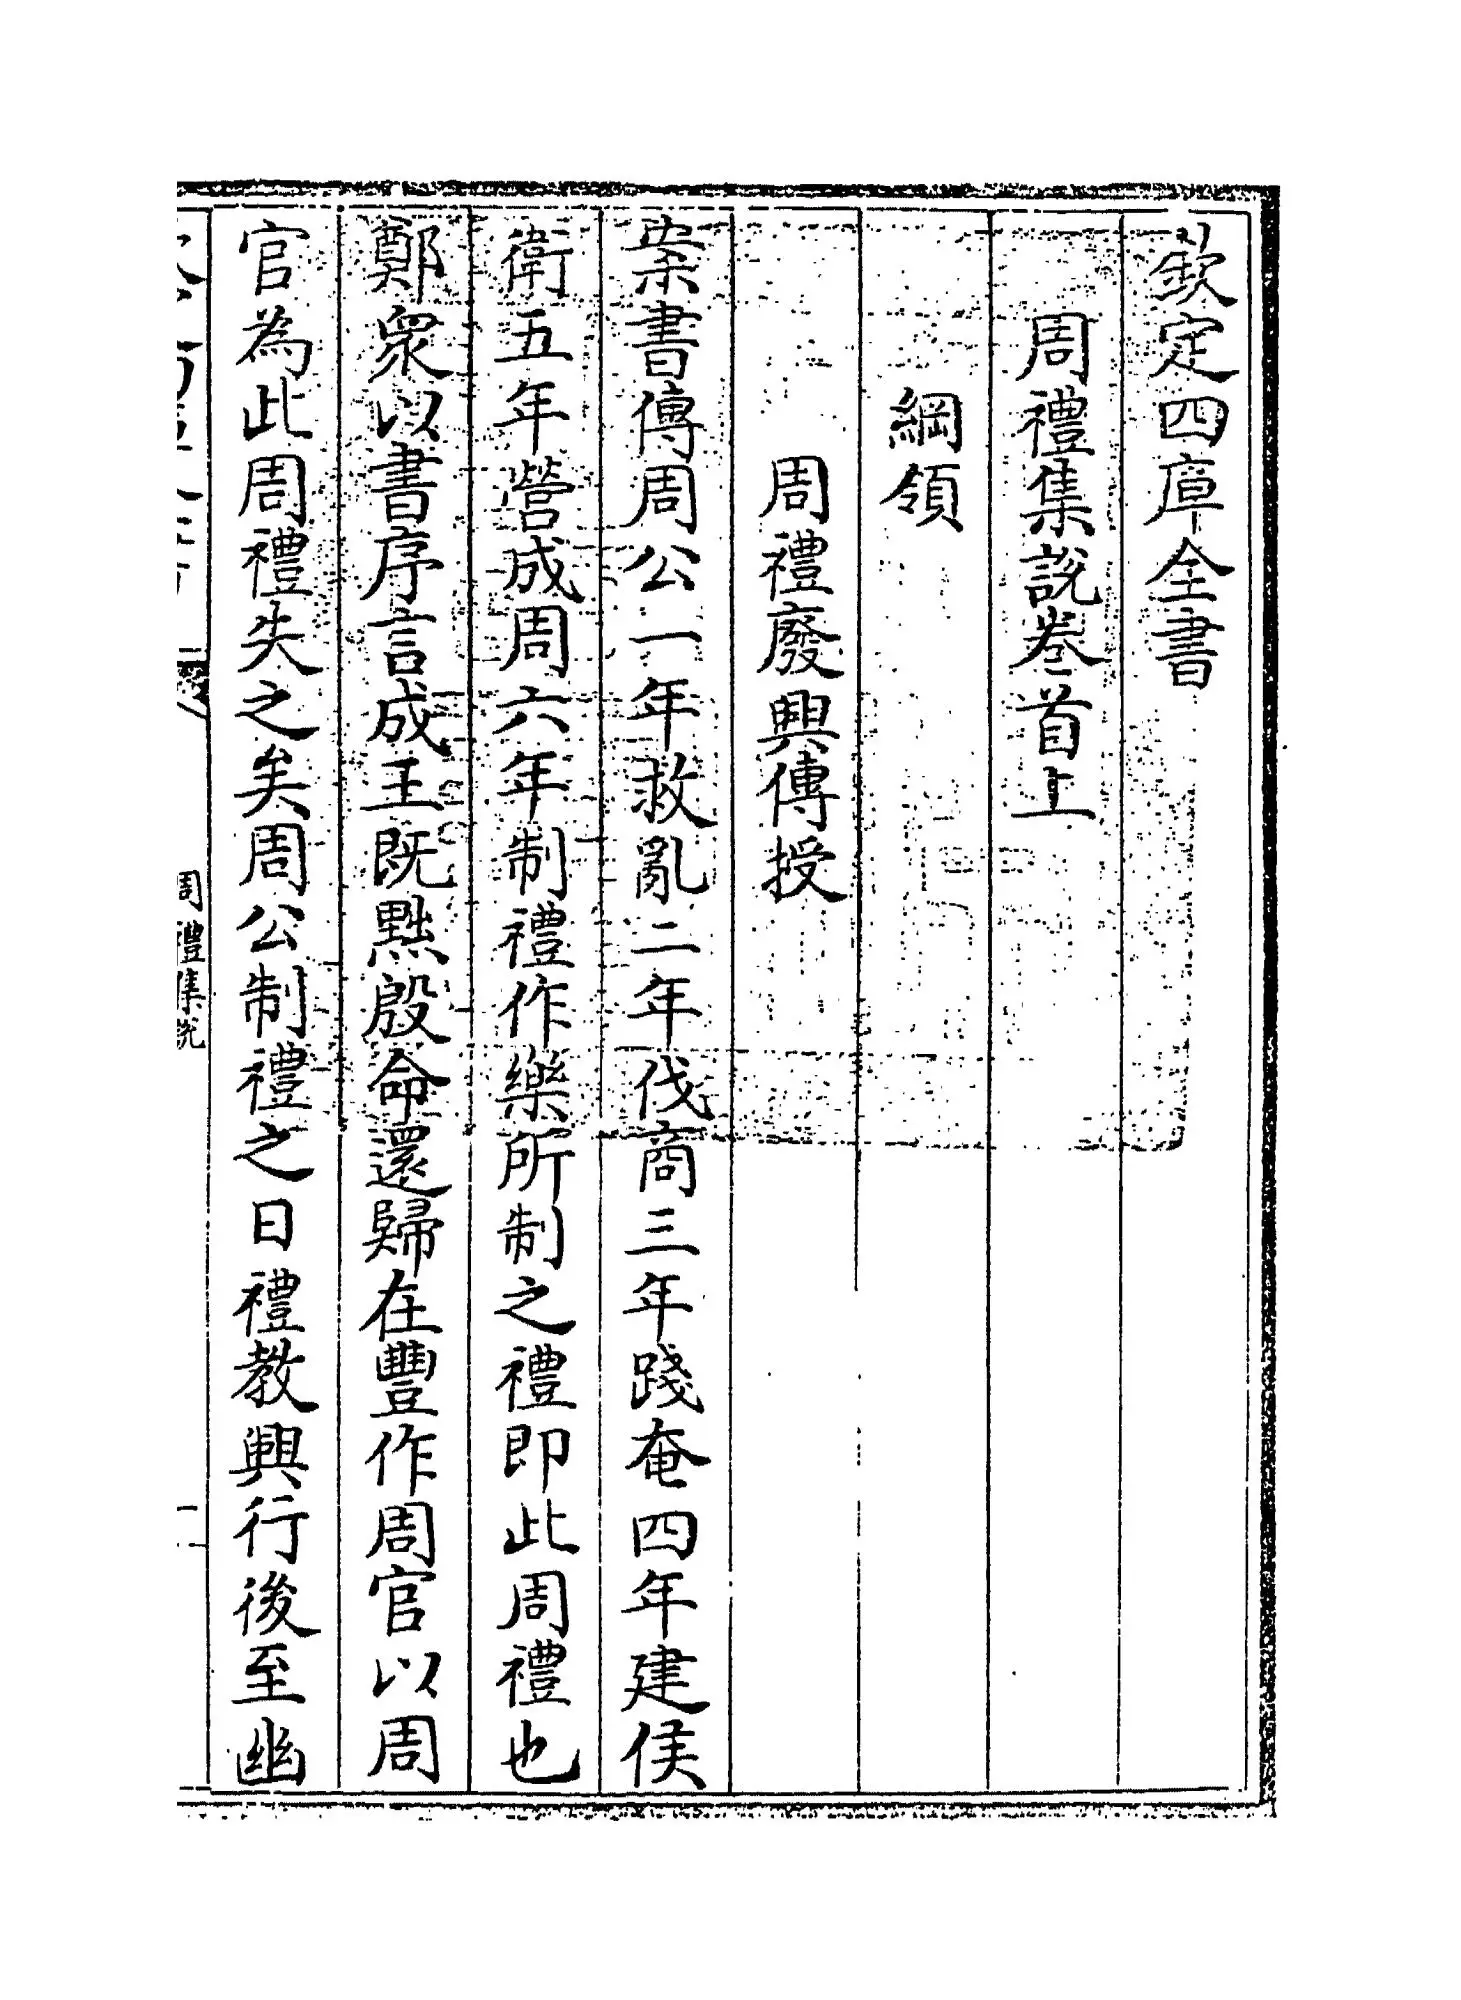 欽定四庫全書
周禮集説卷首上
綱領
周禮廢興傳授
案書傳周公一年救亂二年伐商三年踐奄四年建侯
衛五年營成周六年制禮作樂所制之禮即此周禮也
鄭衆以書序言成王既黜殷命還歸在豐作周官以周
官為此周禮失之矣周公制禮之日禮教興行後至幽
周禮集説